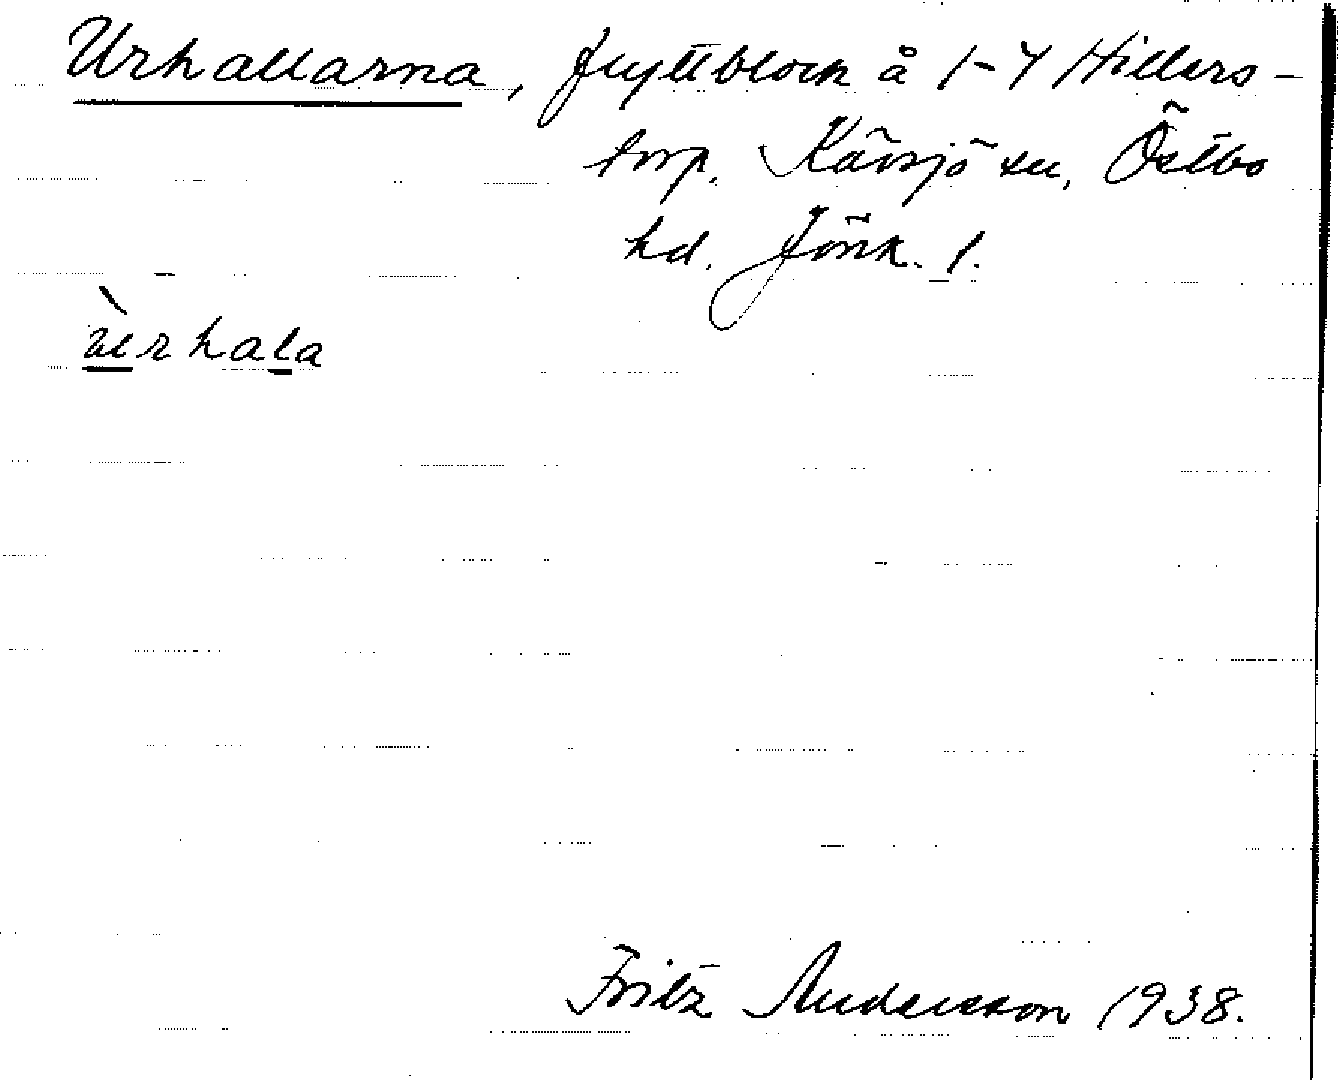 Urhallarna, flyttblock å 1-4 Hillers-
torp. Kävsjö sn, Östbo
hd. Jönk. l.
ùrhala
Fritz Andersson 1938.